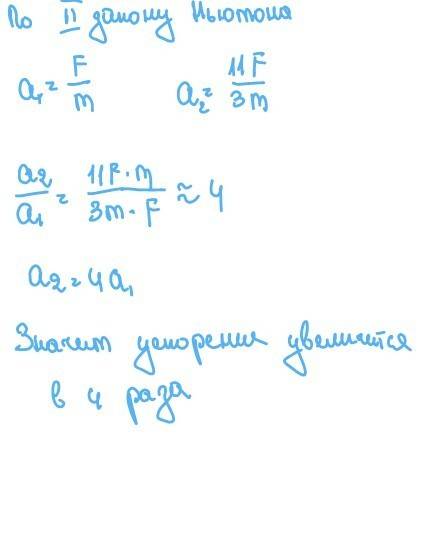 По II закону Ньютона
a₁ = F/m a₂ = 11F/3m
a2/a₁ = 11F·m/3m·F ≈ 4
a2 = 4a₁
Значит ускорение увеличится
в 4 раза